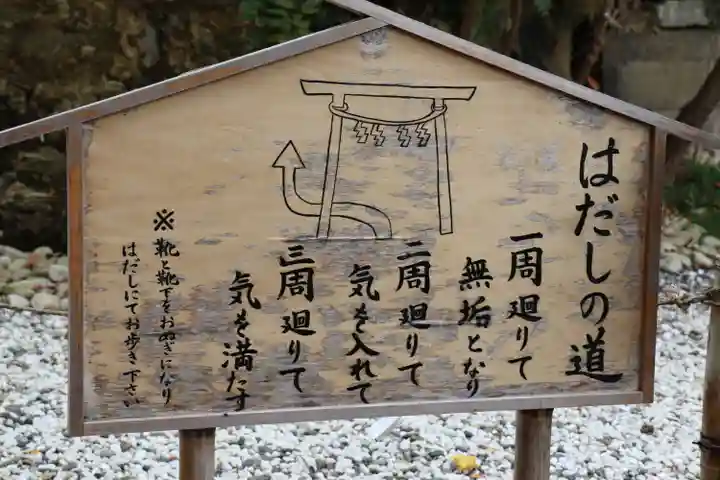 はだしの道
一周廻りて
無垢となり
二周廻りて
気を入れて
三周廻りて
気を満たす
※靴と靴下をおぬぎになり
はだしにてお歩き下さい